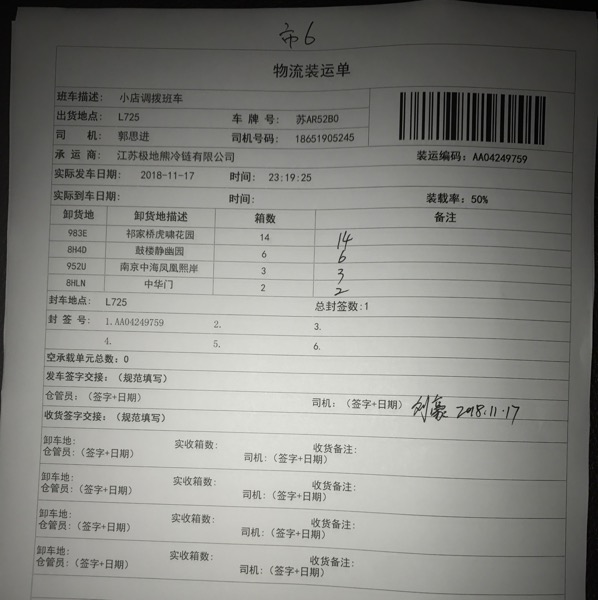 市6
物流装运单
班车描述: 小店调拨班车
出货地点: L725 车 牌 号: 苏AR52B0
司 机: 郭思进 司机号码: 18651905245
承 运 商: 江苏极地熊冷链有限公司 装运编码: AA04249759
实际发车日期: 2018-11-17 时间: 23:19:25
实际到车日期: 时间: 装载率: 50%
卸货地 卸货地描述 箱数 备注
983E 祁家桥虎啸花园 14 14
8H4D 鼓楼静幽园 6 6
952U 南京中海凤凰熙岸 3 3
8HLN 中华门 2 2
封车地点: L725 总封签数:1
封 签 号: 1.AA04249759 2. 3.
4. 5. 6.
空承载单元总数: 0
发车签字交接: (规范填写)
仓管员: (签字+日期) 司机: (签字+日期) 刘豪 2018.11.17
收货签字交接: (规范填写)
卸车地: 实收箱数: 收货备注:
仓管员: (签字+日期) 司机: (签字+日期)
卸车地: 实收箱数: 收货备注:
仓管员: (签字+日期) 司机: (签字+日期)
卸车地: 实收箱数: 收货备注:
仓管员: (签字+日期) 司机: (签字+日期)
卸车地: 实收箱数: 收货备注:
仓管员: (签字+日期) 司机: (签字+日期)